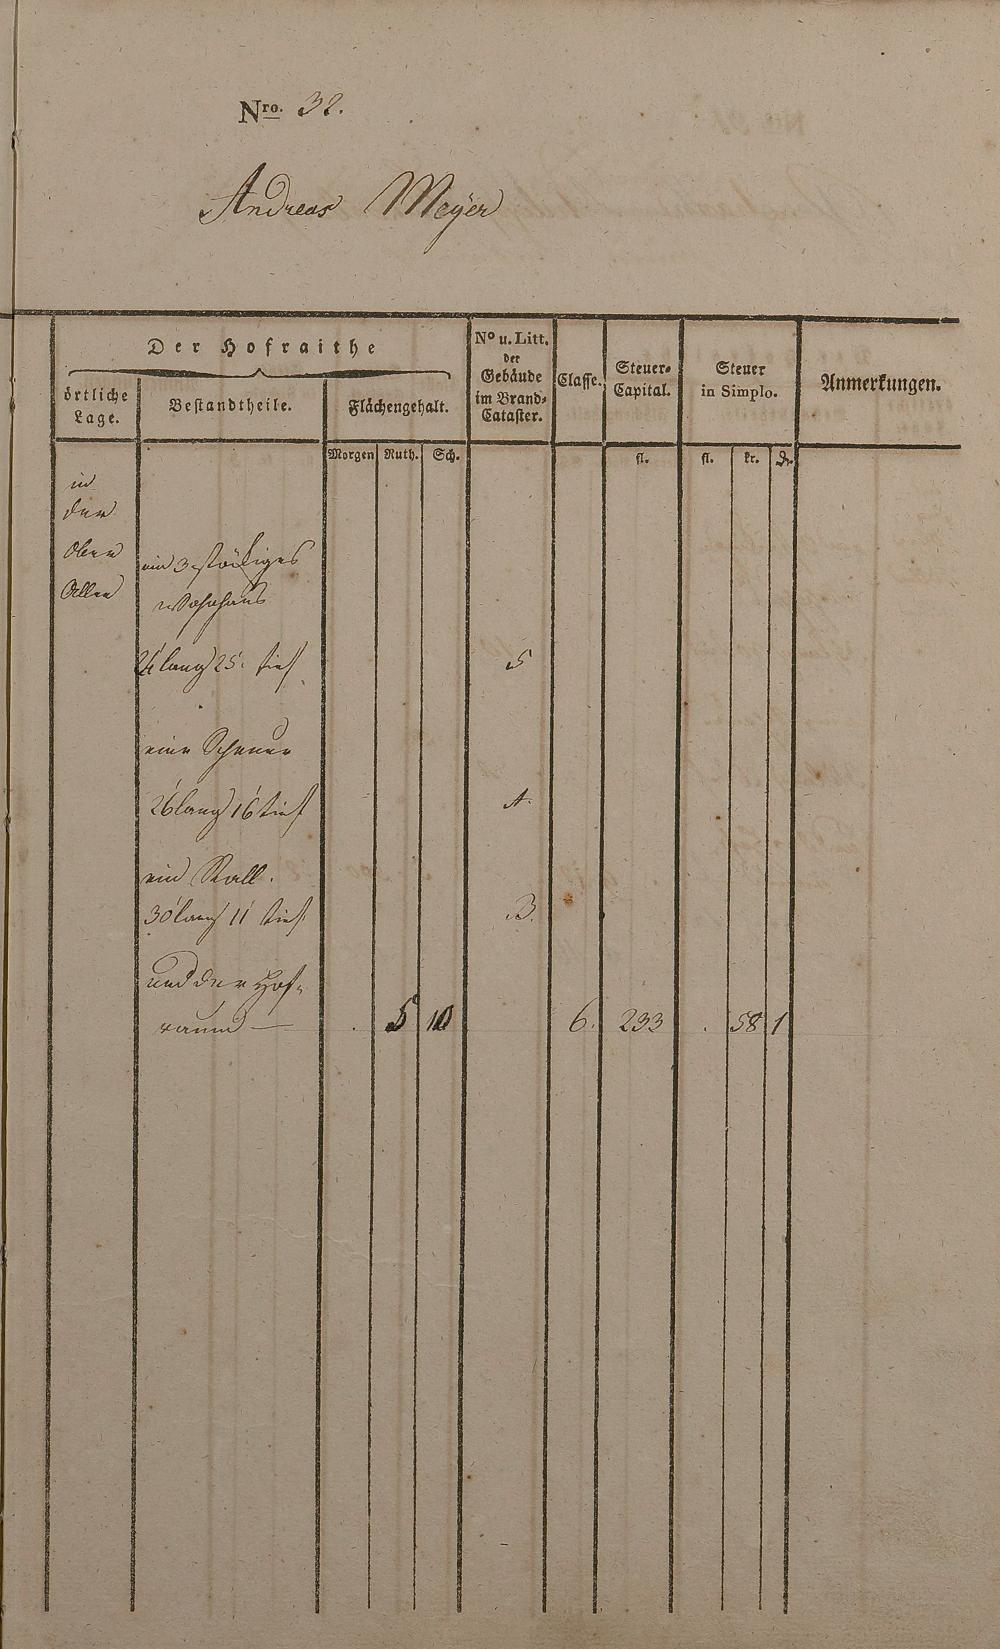 Nro. 32.
Andreas Meÿer
Der Hofraithe
örtliche Lage.
Bestandtheile.
Flächengehalt.
No u. Litt. der Gebäude im Brand-Cataster.
Classe.
Steuer-Capital.
Steuer in Simplo.
Anmerkungen.
Morgen Ruth. Sch. fl. fl. kr. d.
in
der
Ober
ein 3 stöckiges
Wohnhaus
24' lang 25' tief 5
eine Scheuer
26' lang 16' tief A.
ein Stall.
30' lang 11' tief B.
und der Hof-
raum — . 5 10 6. 233 . 58 1